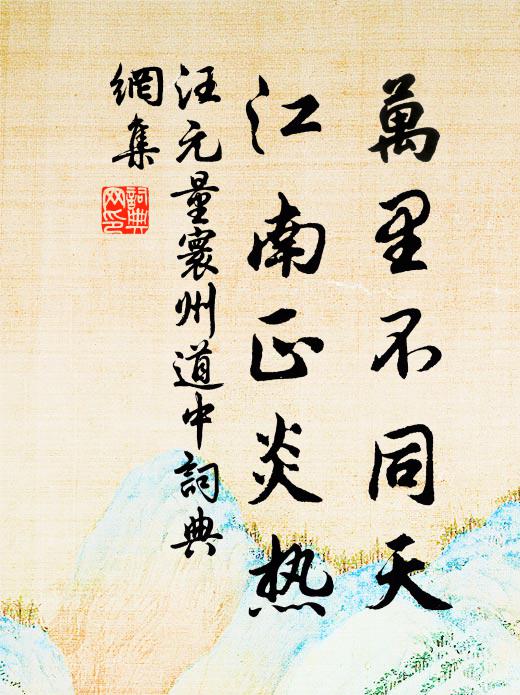 萬里不同天
江南正炎热
汪元量寰州道中詞典
網集
詞典網印